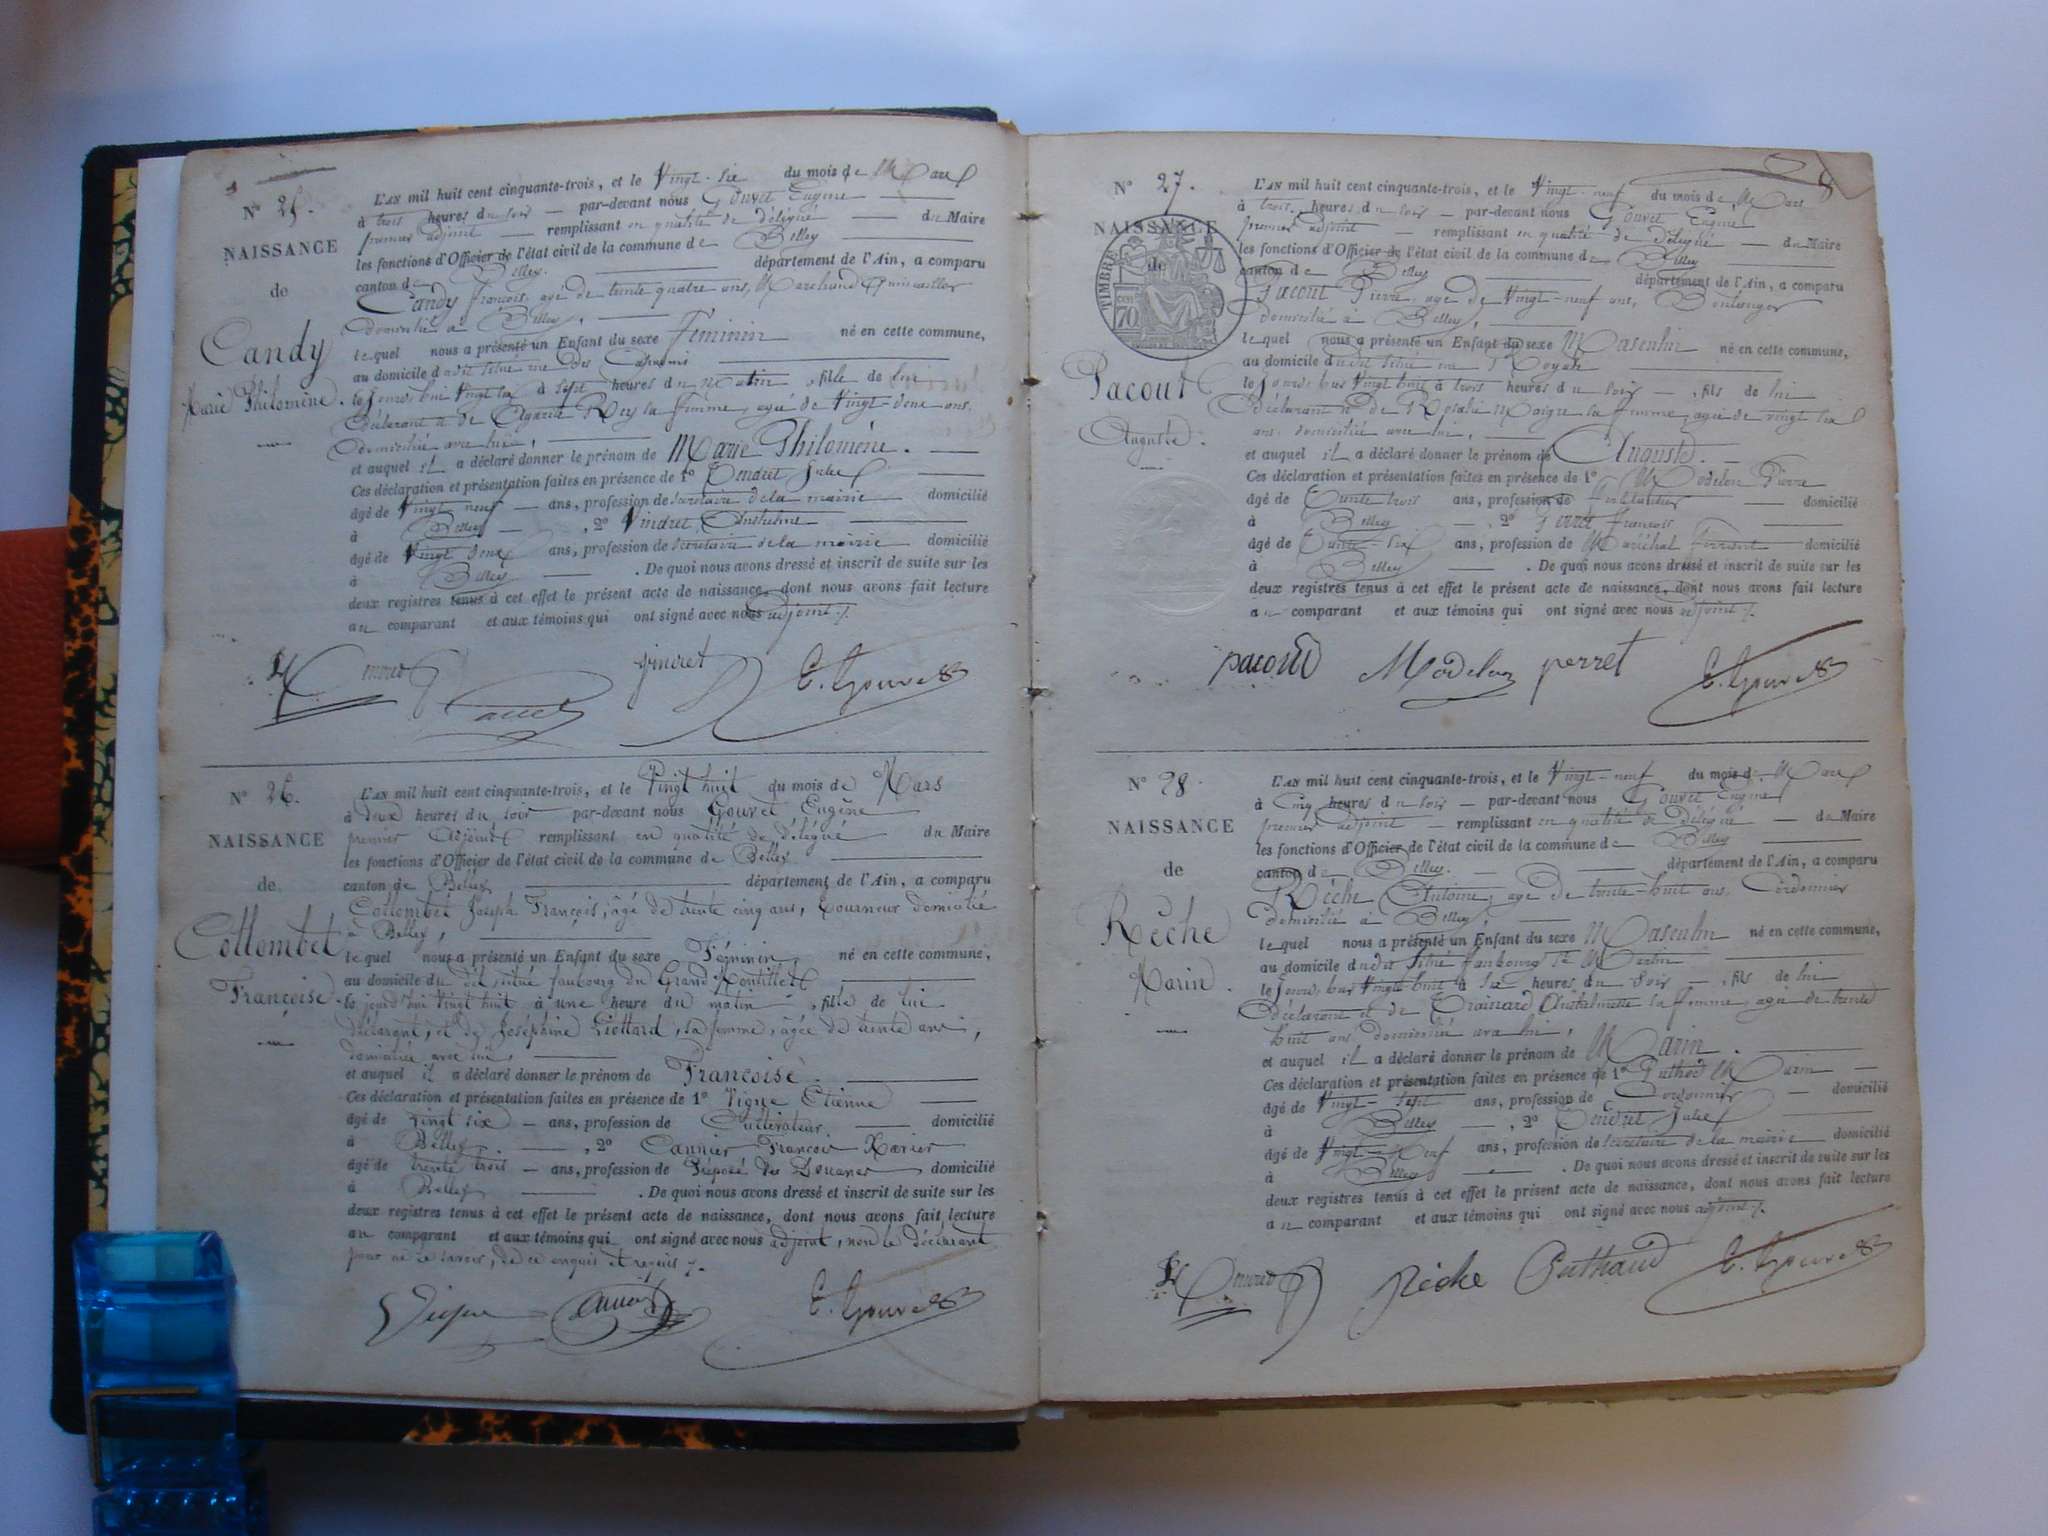 N° 25.
NAISSANCE
de
Candy
Marie Philomène.
L'AN mil huit cent cinquante-trois, et le Vingt-six du mois de Mars
à trois heures du soir — par-devant nous Gouvet Eugène
premier adjoint — remplissant en qualité de délégué — du Maire
les fonctions d'Officier de l'état civil de la commune de Belley
canton de Belley. département de l'Ain, a comparu
Candy françois, age de trente quatre ans, Marchand Quincailler
domicilié à Belley,
lequel nous a présenté un Enfant du sexe Feminin né en cette commune,
au domicile dudit situé rue des
le jourd'hui Vingt six à sept heures du Matin, fille de lui
Déclarant & de Rey sa femme, agée de Vingt-deux ans,
domiciliée avec lui,
et auquel il a déclaré donner le prénom de Marie Philomène.
Ces déclaration et présentation faites en présence de 1° Jules
âgé de Vingt neuf — ans, profession de secretaire de la mairie domicilié
à Belley —, 2° Vindret Anthelme
âgé de Vingt deux ans, profession de secretaire de la mairie domicilié
à Belley — . De quoi nous avons dressé et inscrit de suite sur les
deux registres tenus à cet effet le présent acte de naissance, dont nous avons fait lecture
au comparant et aux témoins qui ont signé avec nous adjoint ./.
vindret E. Gouvet
N° 26.
NAISSANCE
de
Collombet
Françoise
L'AN mil huit cent cinquante-trois, et le Vingt huit du mois de Mars
à deux heures du soir par-devant nous Gouvet Eugène
premier Adjoint remplissant en qualité de délégué du Maire
les fonctions d'Officier de l'état civil de la commune de Belley
canton de Belley département de l'Ain, a comparu
Collombet Joseph François, âgé de trente cinq ans, tourneur domicilié
à Belley,
lequel nous a présenté un Enfant du sexe Féminin, né en cette commune,
au domicile du dit situé faubourg du Grand
le jourd'hui vingt huit à une heure du matin, fille de lui
déclarant, et de Joséphine Liottard, sa femme, âgée de trente ans,
domiciliée avec lui,
et auquel il a déclaré donner le prénom de Françoise.
Ces déclaration et présentation faites en présence de 1° Vigne Etienne
âgé de vingt six — ans, profession de Cultivateur domicilié
à Belley — , 2° Cannier François Xavier
âgé de trente trois — ans, profession de Préposé des Douanes domicilié
à Belley . De quoi nous avons dressé et inscrit de suite sur les
deux registres tenus à cet effet le présent acte de naissance, dont nous avons fait lecture
au comparant et aux témoins qui ont signé avec nous adjoint, non le déclarant
pour ne le savoir, de ce enquis et requis ./.
Vigne E. Gouvet
8
N° 27.
NAISSANCE
de
TIMBRE
70
Pacout
Auguste.
L'AN mil huit cent cinquante-trois, et le Vingt-neuf du mois de Mars
à trois heures du soir — par-devant nous Gouvet Eugène
premier adjoint — remplissant en qualité de Délégué — du Maire
les fonctions d'Officier de l'état civil de la commune de Belley
canton de Belley département de l'Ain, a comparu
Pacout Pierre, age de Vingt-neuf ans, Boulanger
domicilié à Belley,
lequel nous a présenté un Enfant du sexe Masculin né en cette commune,
au domicile dudit situé rue Royale
le jourd'hui Vingt huit à trois heures du soir —, fils de lui
Déclarant & de Rosalie sa femme, agée de vingt six
ans domiciliée avec lui,
et auquel il a déclaré donner le prénom de Auguste.
Ces déclaration et présentation faites en présence de 1° Modelon Pierre
âgé de Trente trois ans, profession de domicilié
à Belley —, 2° Perret françois
âgé de Trente-six ans, profession de Maréchal Ferrant domicilié
à Belley — . De quoi nous avons dressé et inscrit de suite sur les
deux registres tenus à cet effet le présent acte de naissance, dont nous avons fait lecture
au comparant et aux témoins qui ont signé avec nous adjoint ./.
pacout Modelon perret E. Gouvet
N° 28.
NAISSANCE
de
Rêche
Marin.
L'AN mil huit cent cinquante-trois, et le Vingt-neuf du mois de Mars
à Cinq heures du soir — par-devant nous Gouvet Eugène
premier adjoint — remplissant en qualité de Délégué — du Maire
les fonctions d'Officier de l'état civil de la commune de Belley
canton de Belley. département de l'Ain, a comparu
Rêche Antoine, age de trente-huit ans, Cordonnier
domicilié à Belley,
lequel nous a présenté un Enfant du sexe Masculin né en cette commune,
au domicile dudit Situé faubourg St Martin
le jourd'hui Vingt huit à six heures du soir —, fils de lui
Déclarant et de Anthelmette sa femme, agée de trente
huit ans domiciliée avec lui,
et auquel il a déclaré donner le prénom de Marin.
Ces déclaration et présentation faites en présence de 1° Puthod Marin
âgé de Vingt-sept ans, profession de Cordonnier — domicilié
à Belley —, 2° Jules
âgé de Vingt-neuf ans, profession de secretaire de la mairie domicilié
à Belley . De quoi nous avons dressé et inscrit de suite sur les
deux registres tenus à cet effet le présent acte de naissance, dont nous avons fait lecture
au comparant et aux témoins qui ont signé avec nous adjoint ./.
Rèche Puthaud E. Gouvet